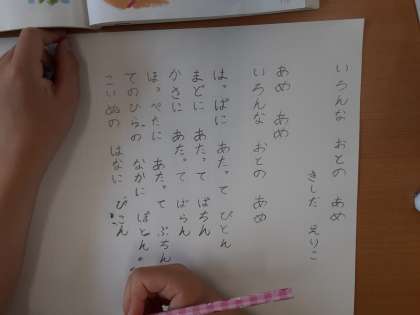 いろんな おとの あめ
きしだ えりこ
あめ あめ
いろんな おとの あめ
はっぱに あたって ぴとん
まどに あたって ぱちん
かさに あたって ぱらん
ほっぺたに あたって ぷちん
てのひらの なかに ぽとん
こいぬの はなに ぴこん